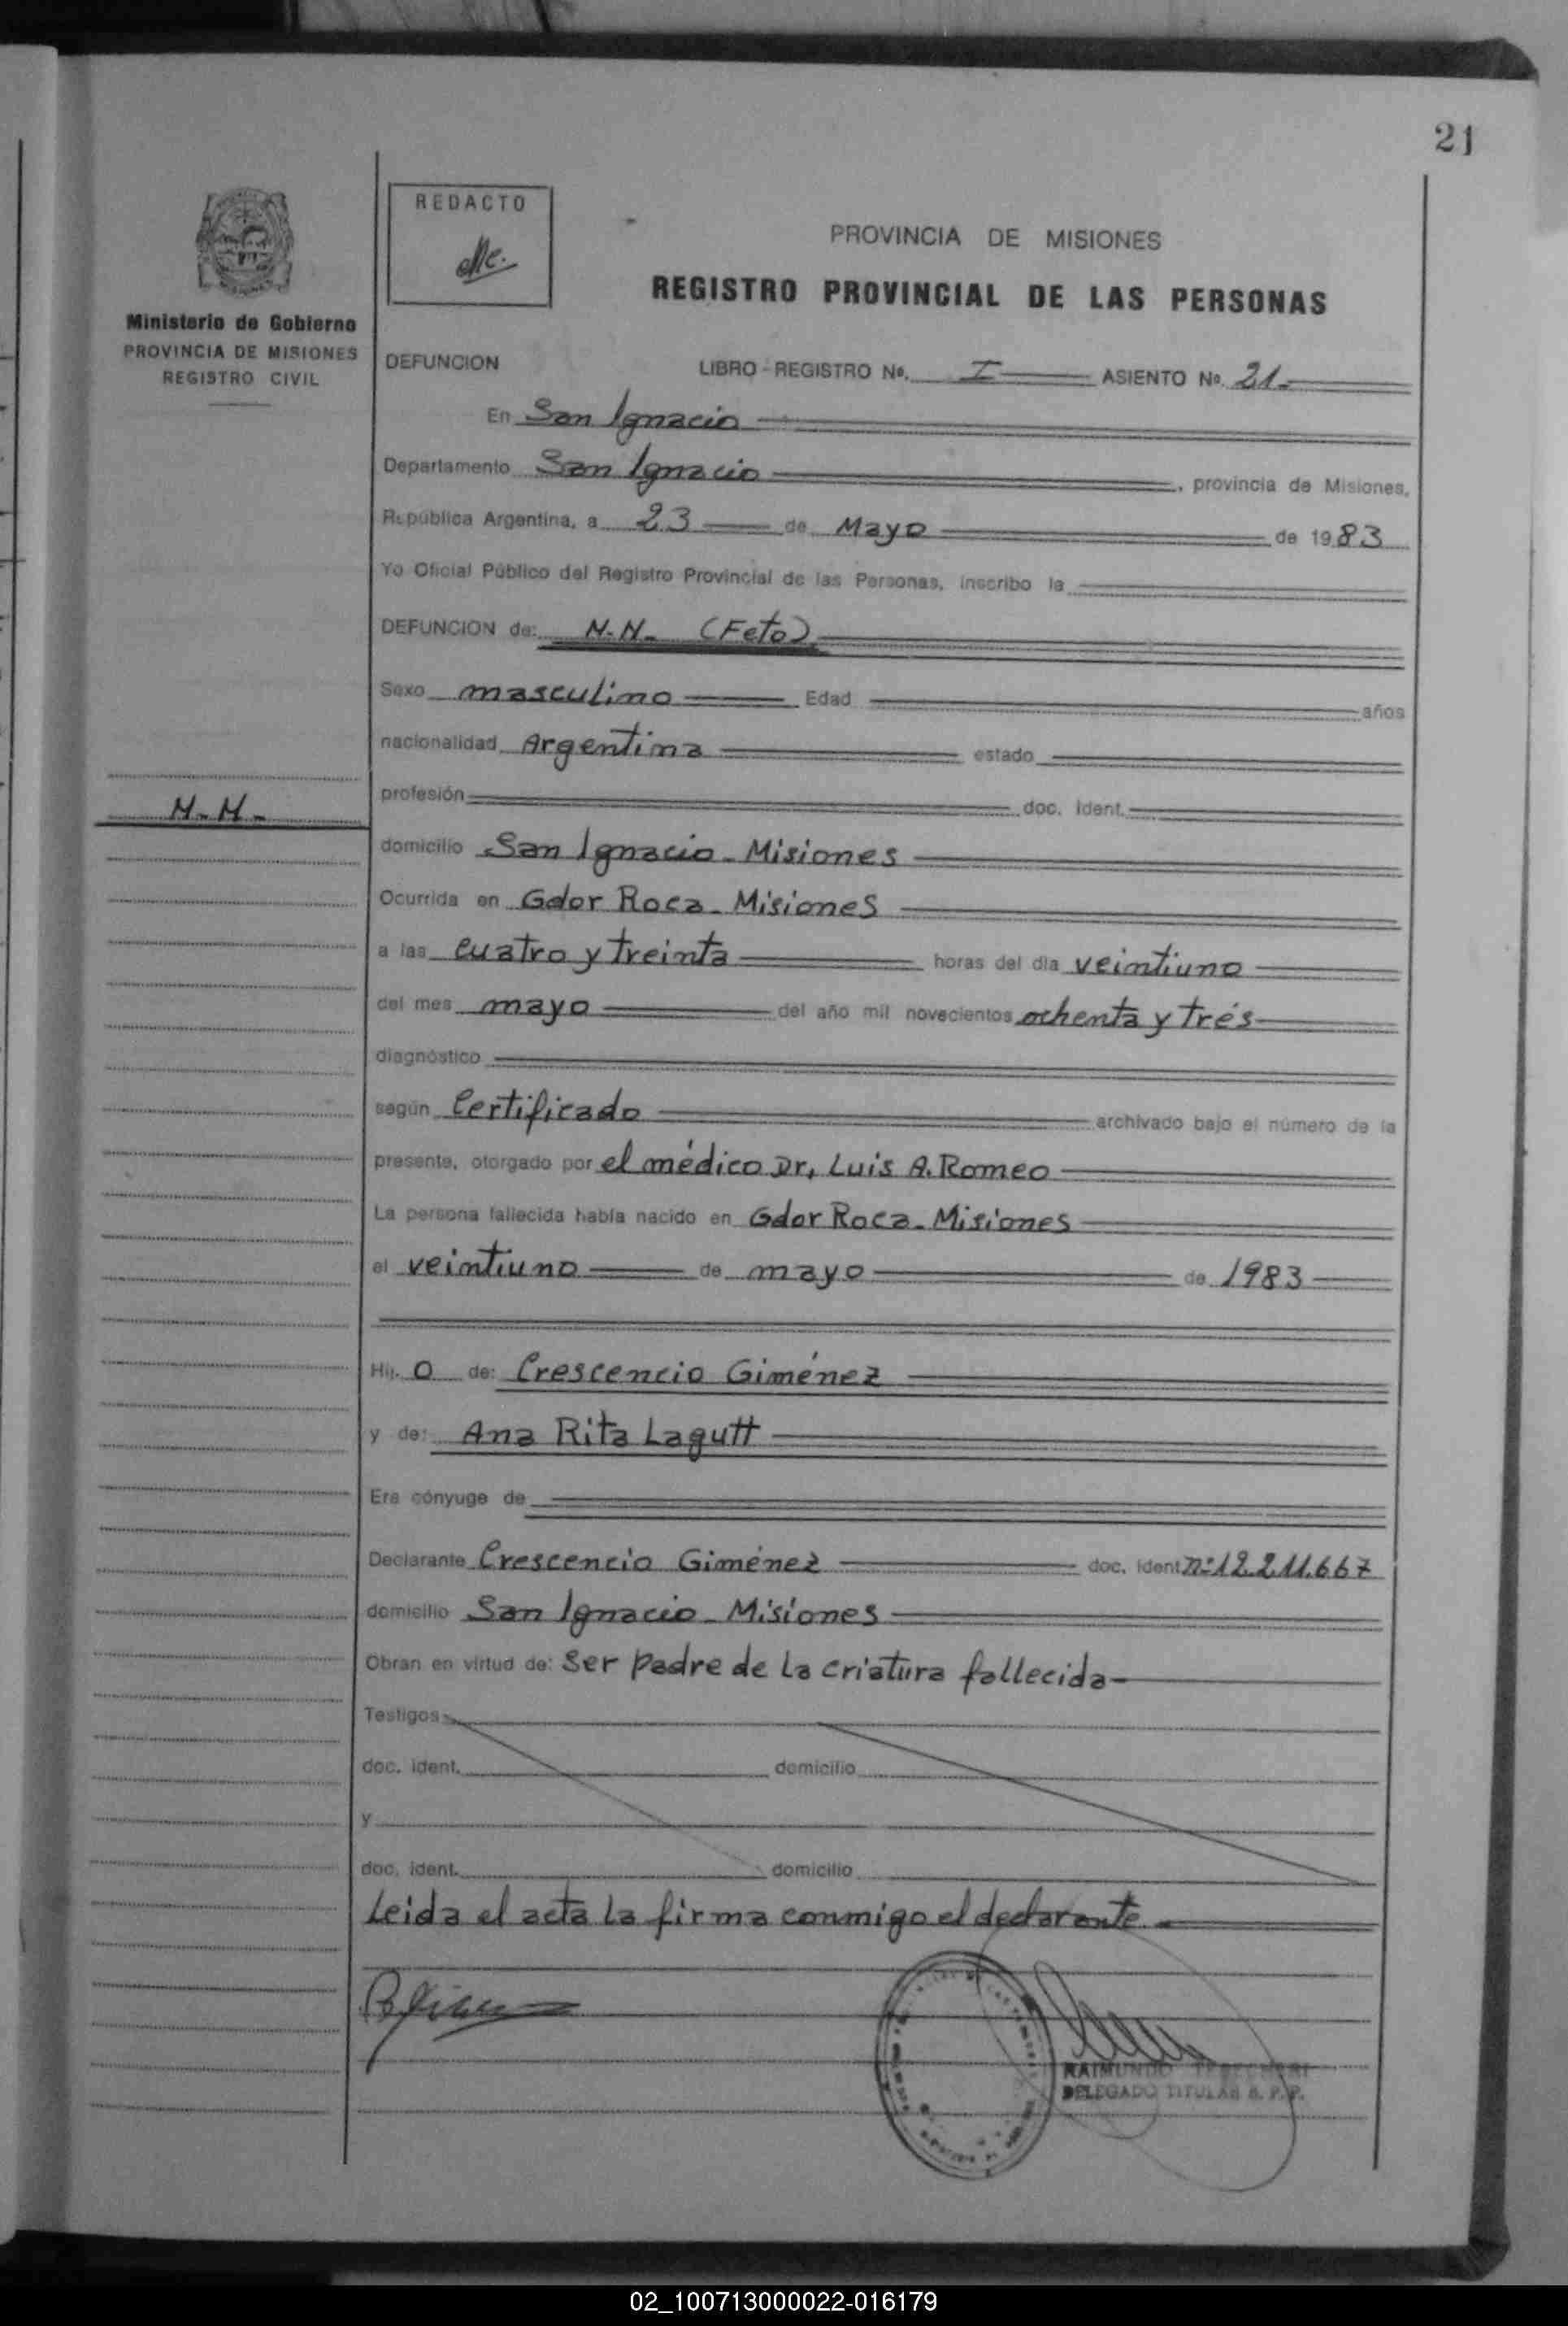 21
REDACTO
PROVINCIA DE MISIONES
REGISTRO PROVINCIAL DE LAS PERSONAS
Ministerio de Gobierno
PROVINCIA DE MISIONES
REGISTRO CIVIL
DEFUNCION LIBRO-REGISTRO No. I ASIENTO No. 21-
En San Ignacio
Departamento San Ignacio, provincia de Misiones,
República Argentina, a 23 de Mayo de 1983
Yo Oficial Público del Registro Provincial de las Personas, inscribo la
DEFUNCION de: N-N- (Feto)
Sexo masculino Edad años
nacionalidad Argentina estado
profesión doc. ident.
N-N-
domicilio San Ignacio-Misiones
Ocurrida en Gdor Roca-Misiones
a las cuatro y treinta horas del día veintiuno
del mes mayo del año mil novecientos ochenta y trés
diagnóstico
según Certificado archivado bajo el número de la
presente, otorgado por el médico Dr, Luis A. Romeo
La persona fallecida había nacido en Gdor Roca-Misiones
el veintiuno de mayo de 1983
Hij. o de: Crescencio Giménez
y de: Ana Rita Lagutt
Era cónyuge de
Declarante Crescencio Giménez doc. ident nº 12.211.667
domicilio San Ignacio-Misiones
Obran en virtud de: Ser padre de la criatura fallecida-
Testigos
doc. ident. domicilio
y
doc. ident. domicilio
Leida el acta la firma conmigo el declarante.-
RAIMUNDO
DELEGADO TITULAR R. P. P.
02_100713000022-016179